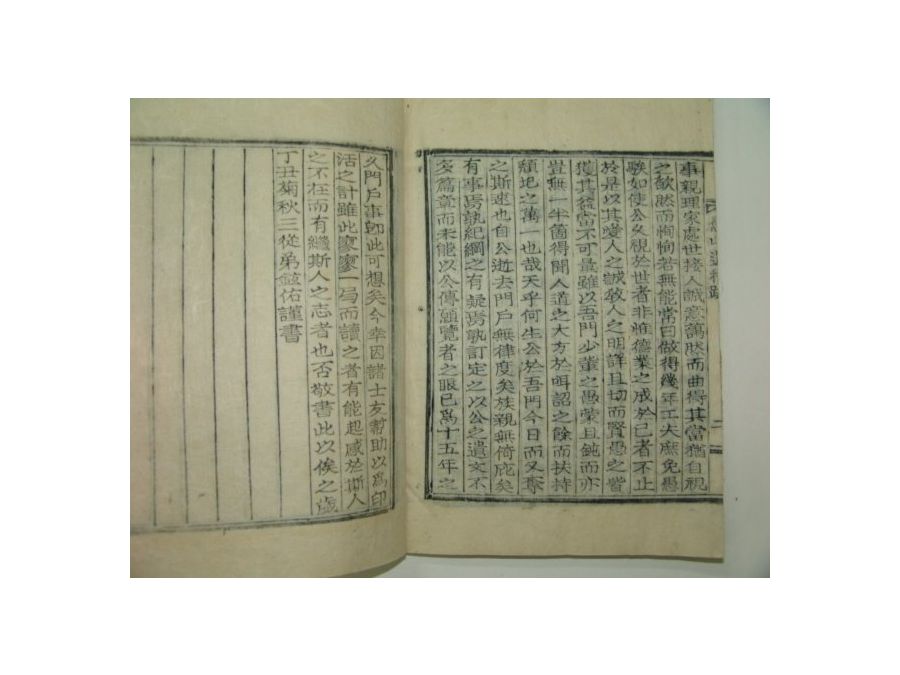 事親理家處世接人誠意藹然而曲得其當猶自視
之欿然而恂恂若無能常曰做得幾年工夫庶免愚
騃如使公久視於世者非惟德業之成於己者不止
於是以其愛人之誠敎人之明詳且切而賢愚之皆
獲其益當不可量雖以吾門少輩之愚蒙且鈍而亦
豈無一半箇得聞人道之大方於咡詔之餘而扶持
頹圮之萬一也哉天乎何生公於吾門今日而又奪
之斯速也自公逝去門戶無律度矣族親無倚庇矣
有事焉孰紀綱之有疑焉孰訂定之以公之遺文不
多篇章而未能以公傳頤覽者之眼已爲十五年之
久門戶事卽此可想矣今幸因諸士友幫助以爲印
活之計雖此寥寥一局而讀之者有能起感於斯人
之不在而有繼斯人之志者也否敬書此以俟之歲
丁丑菊秋三從弟 佑謹書